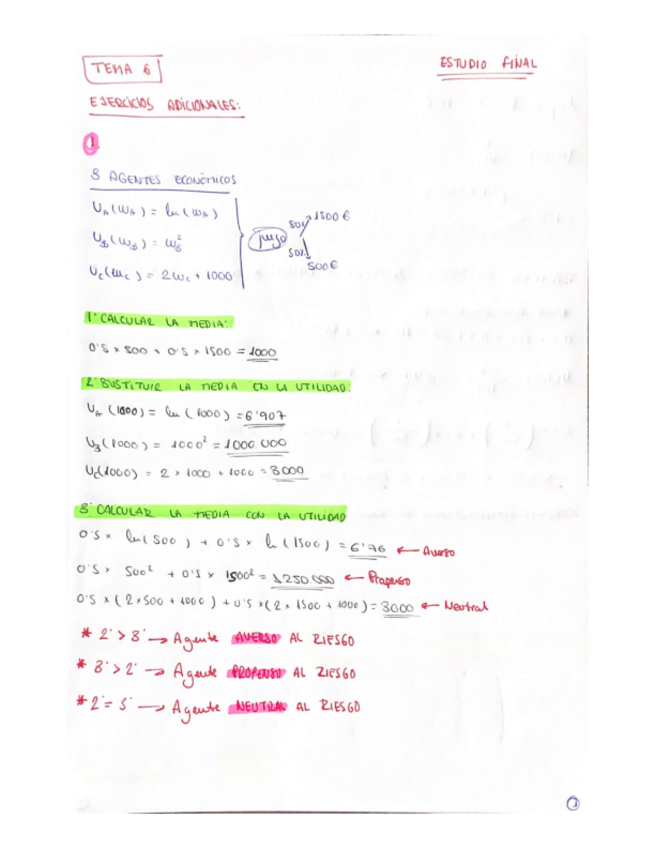 TEMA 6
ESTUDIO FINAL
EJERCICIOS ADICIONALES:
1
3 AGENTES ECONÓMICOS
U_A(W_A) = ln(W_A)
U_B(W_B) = W_B²
U_C(W_C) = 2W_C + 1000
juego
50% 1500 €
50% 500 €
1º CALCULAR LA MEDIA:
0'5 x 500 + 0'5 x 1500 = 1000
2º SUSTITUIR LA MEDIA EN LA UTILIDAD:
U_A(1000) = ln(1000) = 6'907
U_B(1000) = 1000² = 1000.000
U_C(1000) = 2 x 1000 + 1000 = 3000
3º CALCULAR LA MEDIA CON LA UTILIDAD
0'5 x ln(500) + 0'5 x ln(1500) = 6'76 ← Averso
0'5 x 500² + 0'5 x 1500² = 1250000 ← Propenso
0'5 x (2x500 + 1000) + 0'5 x (2 x 1500 + 1000) = 3000 ← Neutral
* 2º > 3º → Agente AVERSO AL RIESGO
* 3º > 2º → Agente PROPENSO AL RIESGO
* 2º = 3º → Agente NEUTRAL AL RIESGO
1